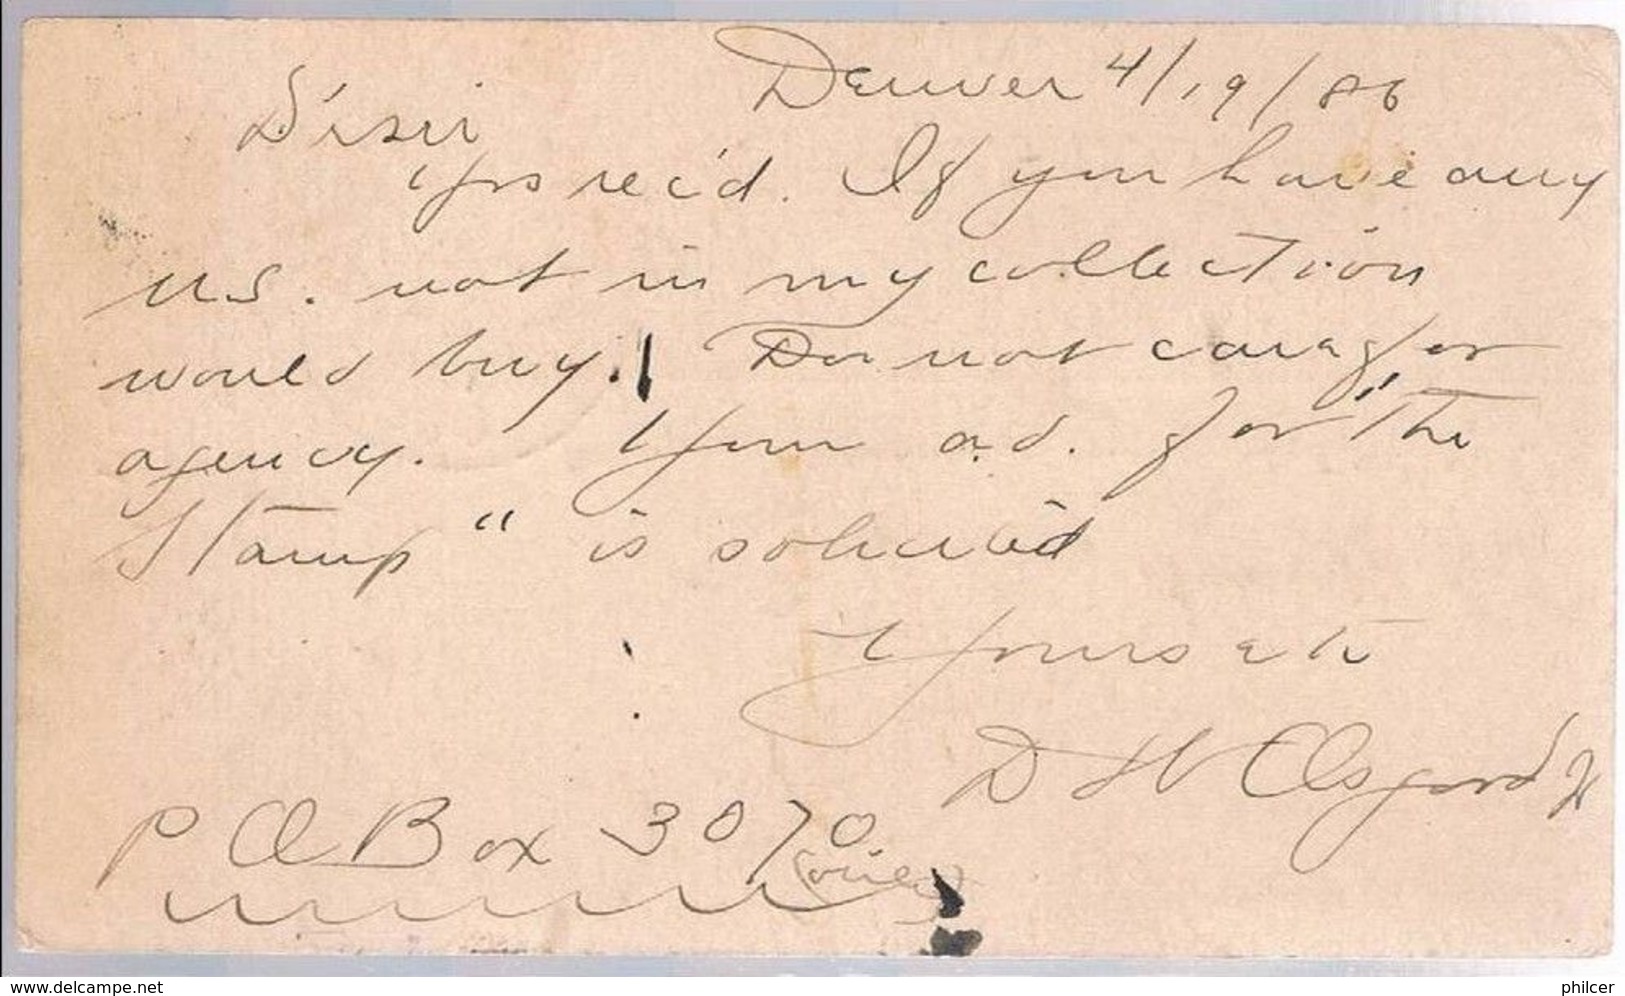 Denver 4/19/86
D'r sir
Yrs rec'd. If you have any
U.S. not in my collection
would buy. Do not care for
agency. Your ad. for "The
Stamp" is solicited
Yours etc
D W Osgood Jr
P O Box 3070
www.delcampe.net
philcer